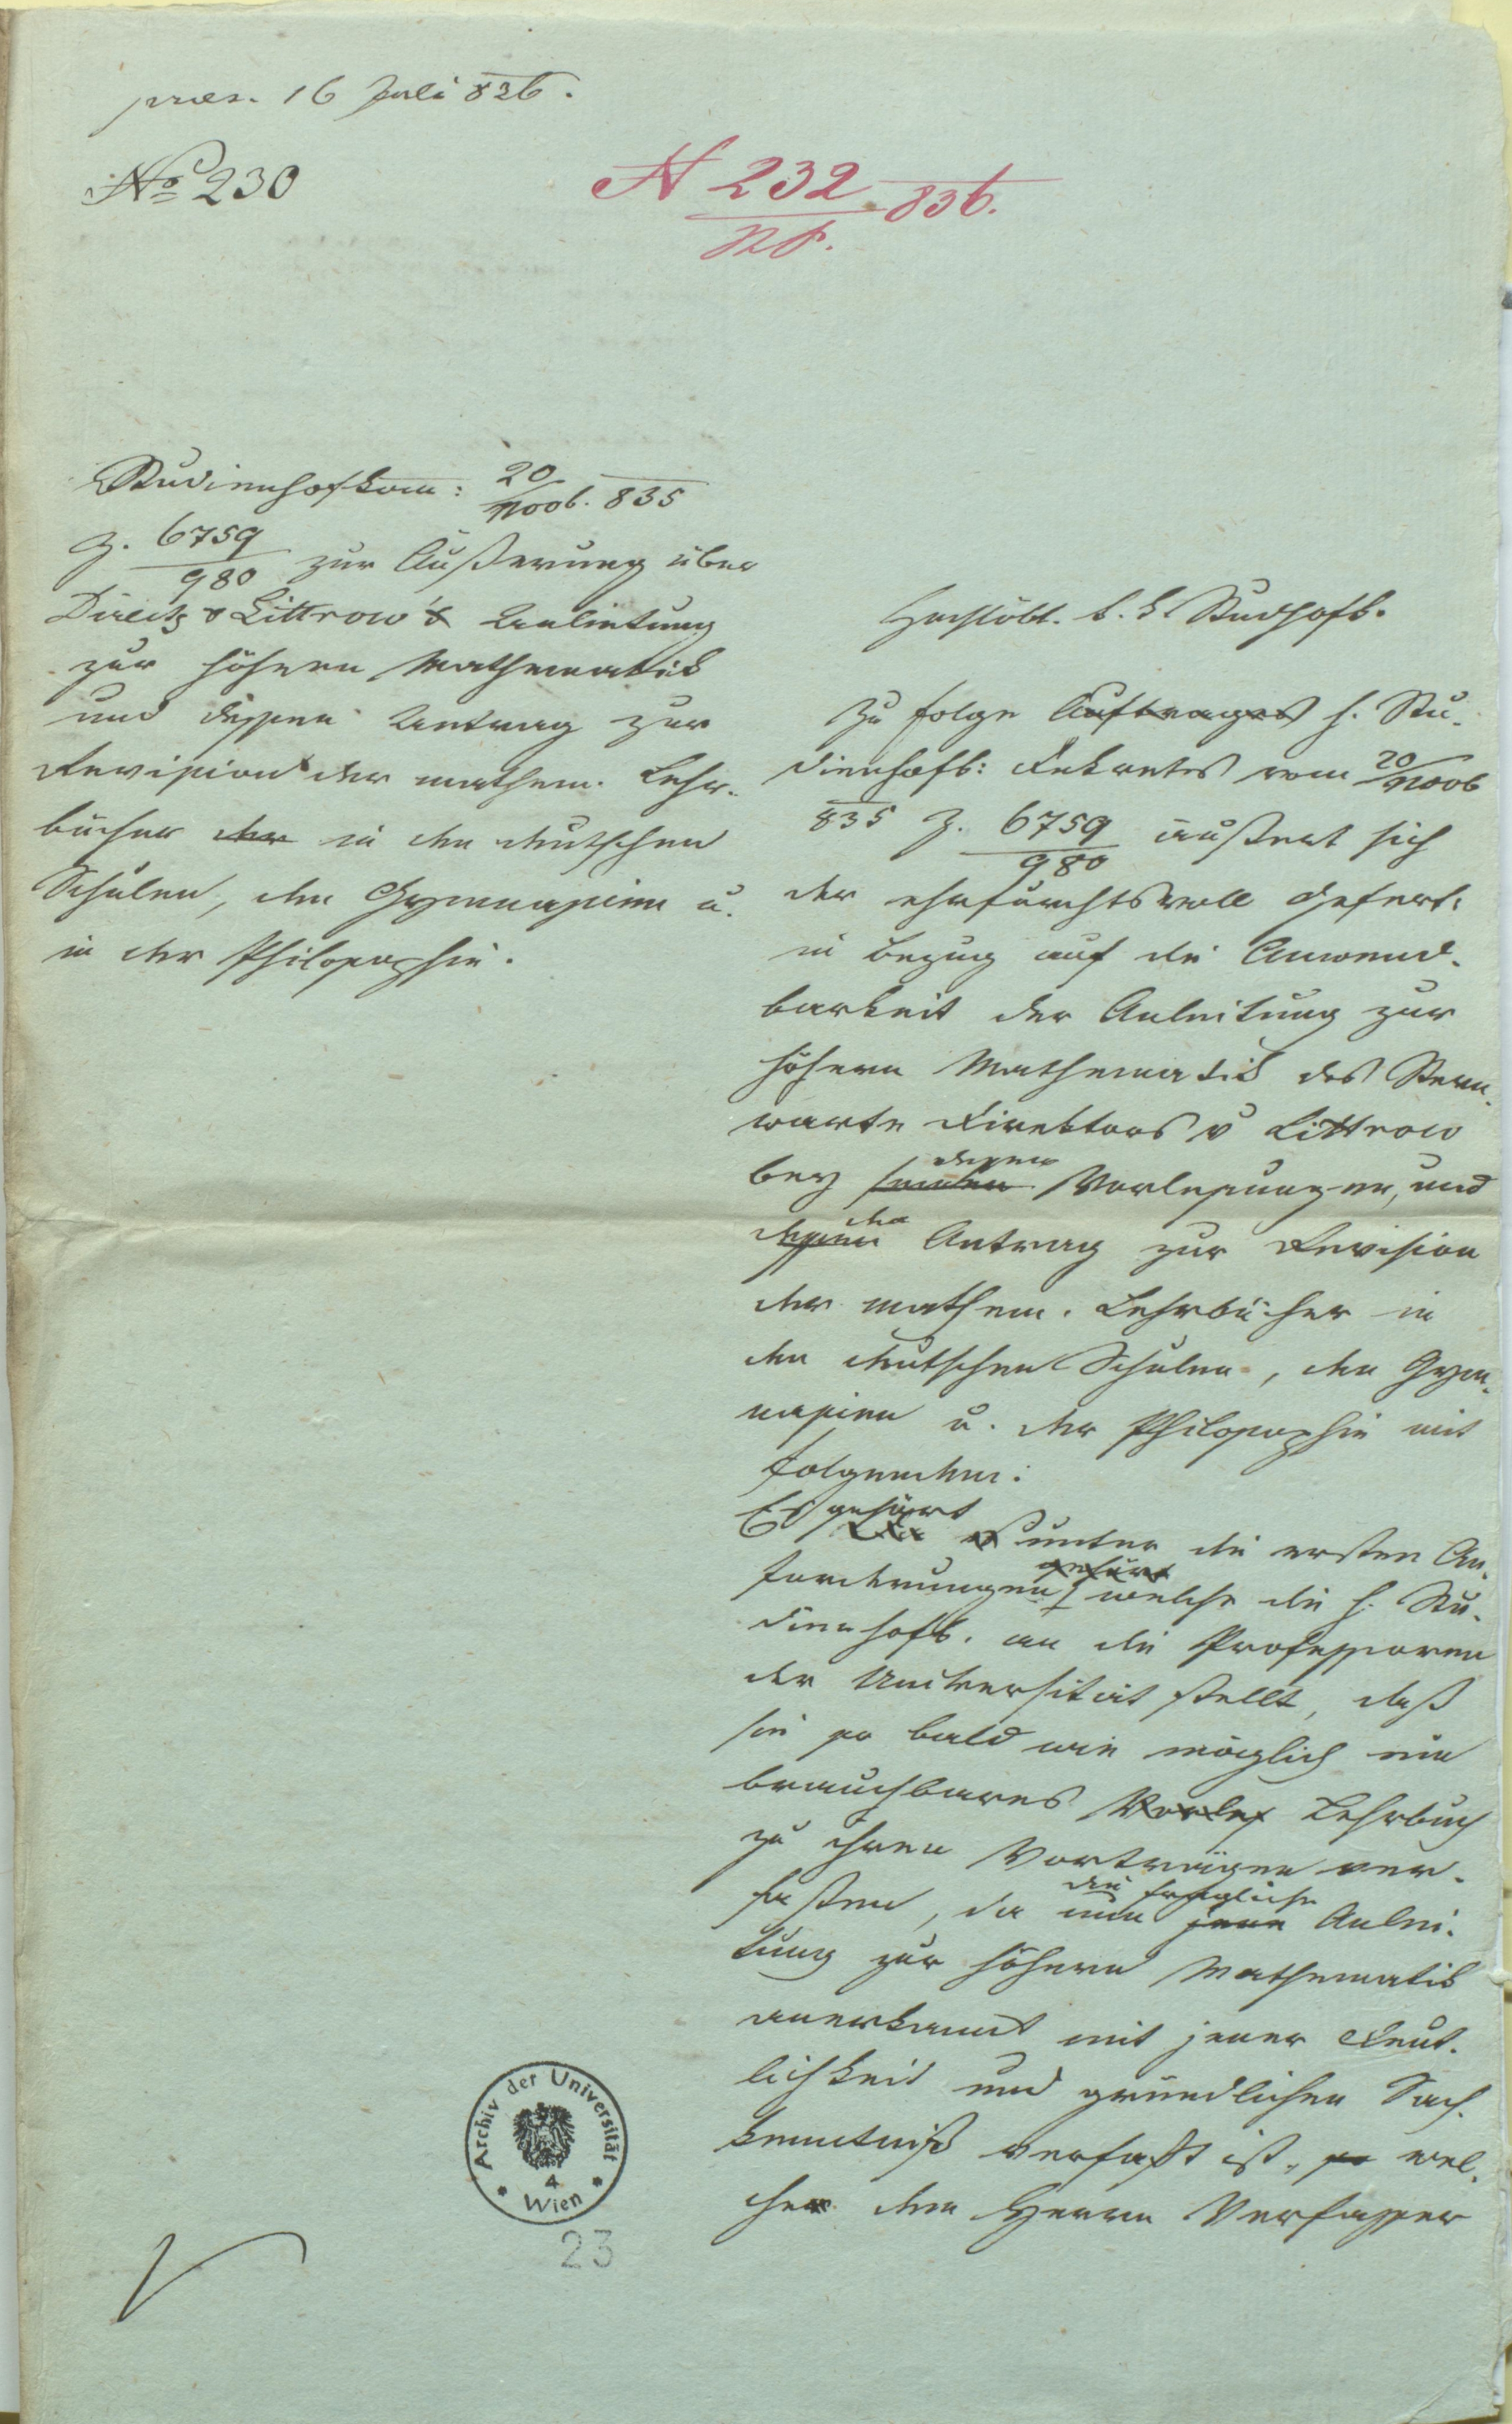 praes. 16 Juli 836.
No 230
N 232 / 836.
Studienhofkom: 20/Novb. 835
Z. 6759/980 zur Äußerung über
Direkt v Littrow's Anleitung
zur höhern Mathematik
und dessen Antrag zur
Revision der mathem. Lehr-
bücher der in den deutschen
Schulen, den Gymnasien u.
in der Philosophie.
Hochlöbl. k. k. Studhofk.
Zu folge Auftrages h. Stu-
dienhofk: Dekretes vom 20/Novb
835 Z. 6759/980 äußert sich
der ehrfurchtsvoll Gefert.
in Bezug auf die Anwend-
barkeit der Anleitung zur
höhern Mathematik des Stern-
warte Direktors v Littrow
dessen
bey seinen Vorlesungen, und
den
dessen Antrag zur Revision
der mathem. Lehrbücher in
den deutschen Schulen, den Gym-
nasien u. der Philosophie mit
folgendem:
Es gehört
unter die ersten An-
gehört
forderungen, welche die h. Stu-
dienhofk. an die Professoren
der Universität stellt, daß
sie so bald wie möglich ein
brauchbares Vorles Lehrbuch
zu ihren Vorträgen ver-
die fragliche
faßen, da nun jene Anlei-
tung zur höhern Mathematik
anerkannt mit jener Deut-
lichkeit und gründlichen Sach-
kenntniß verfaßt ist, so wel-
che den Herrn Verfasser
Archiv der Universität
4
Wien
23